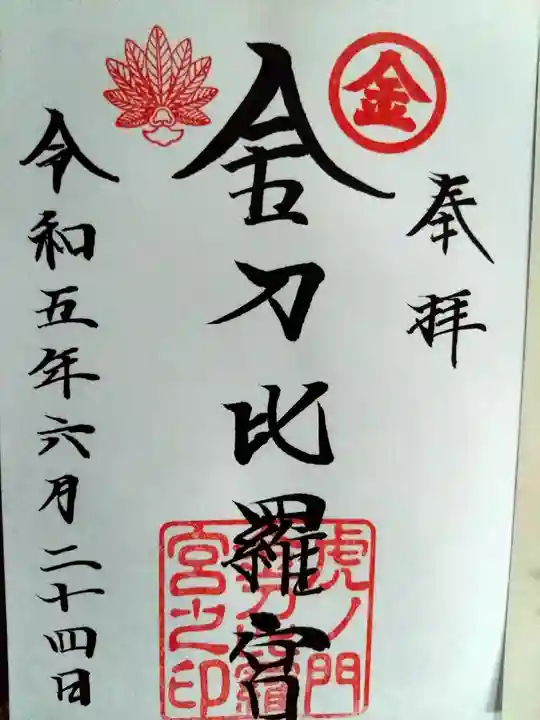 奉拝
金
金刀比羅宮
虎ノ門
金刀比羅
宮之印
令和五年六月二十四日